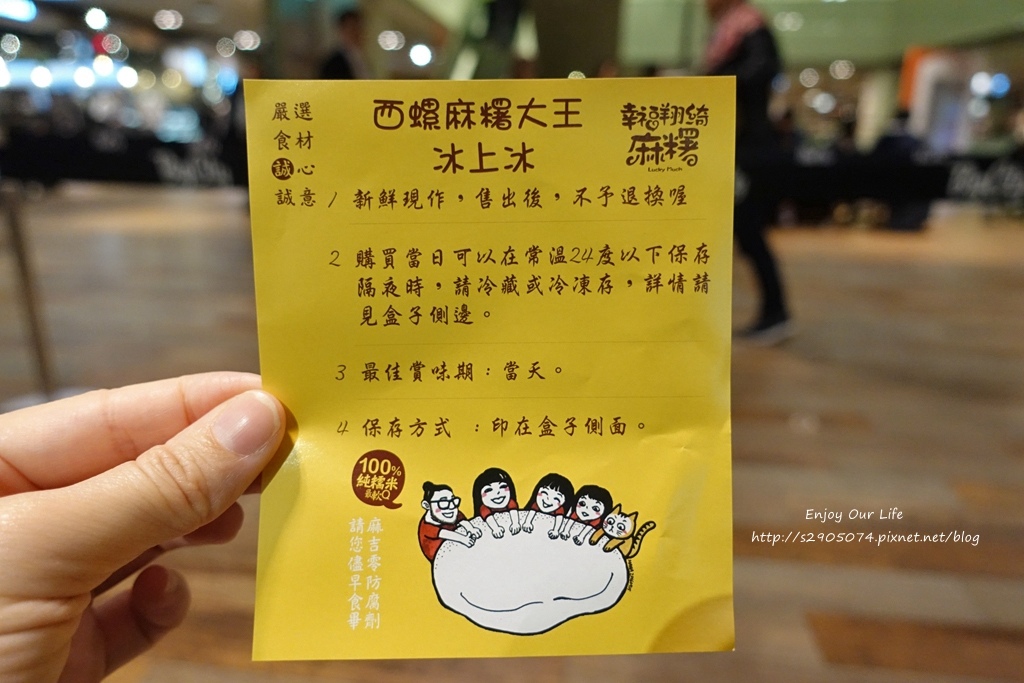 嚴選
食材
誠心
誠意
西螺麻糬大王
冰上冰
幸福翔綺
麻糬
Lucky Much
1 新鮮現作，售出後，不予退換喔
2 購買當日可以在常溫24度以下保存
隔夜時，請冷藏或冷凍存，詳情請
見盒子側邊。
3 最佳賞味期：當天。
4 保存方式 ：印在盒子側面。
100%
純糯米
最軟Q
麻吉零防腐劑
請您儘早食畢
Enjoy Our Life
http://s2905074.pixnet.net/blog